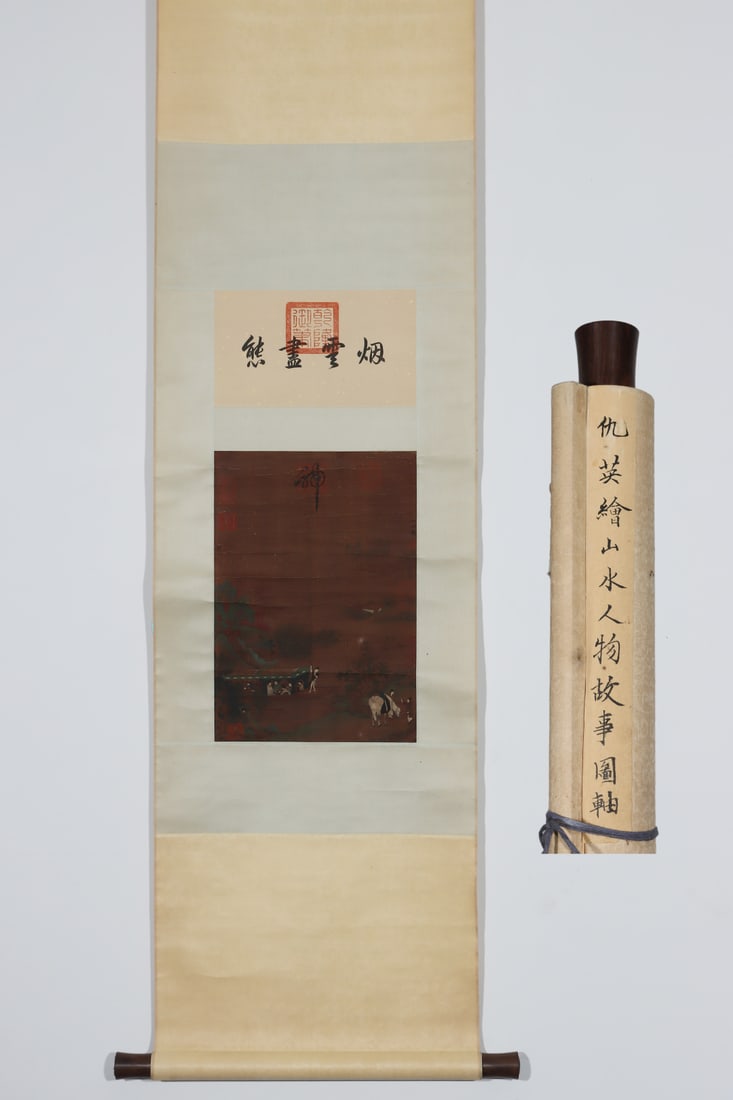 烟雲盡態
乾隆御筆
神
仇英繪山水人物故事圖軸